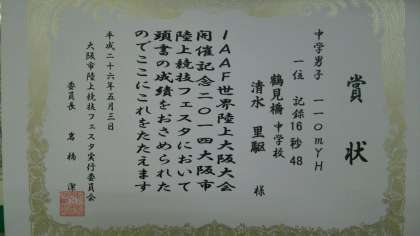 賞状
中学男子 一一〇mYH
一位 記録16秒48
鶴見橋中学校
清水 里駆 様
IAAF世界陸上大阪大会
開催記念二〇一四大阪市
陸上競技フェスタにおいて
頭書の成績をおさめられた
のでここにこれをたたえます
平成二十六年五月三日
大阪市陸上競技フェスタ実行委員会
委員長 岩橋 潔